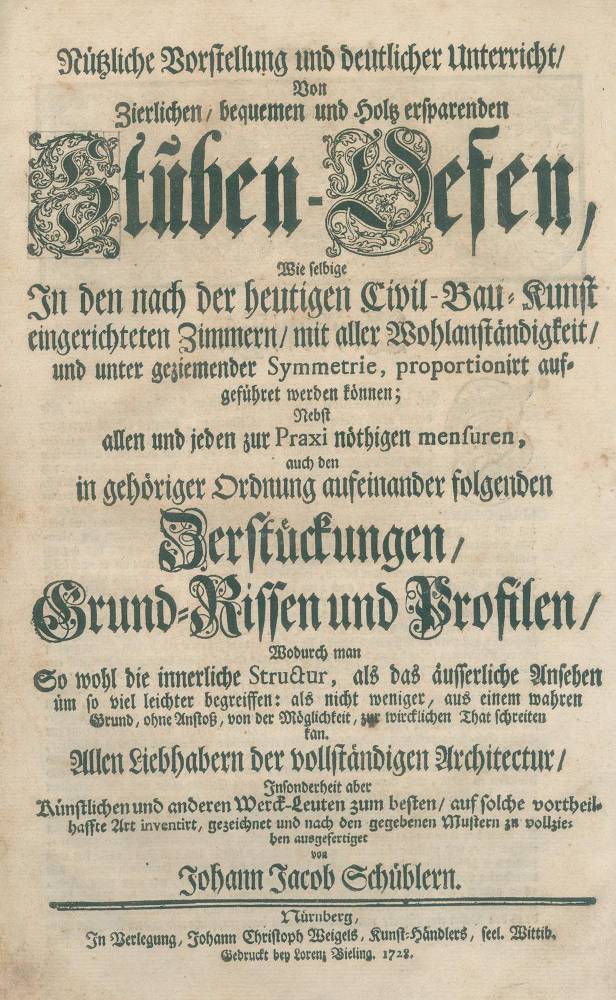 Nützliche Vorstellung und deutlicher Unterricht/
Von
Zierlichen/ bequemen und Holtz ersparenden
Stuben-Oefen,
Wie selbige
In den nach der heutigen Civil-Bau-Kunst
eingerichteten Zimmern/ mit aller Wohlanständigkeit/
und unter geziemender Symmetrie, proportionirt auf-
geführet werden können;
Nebst
allen und jeden zur Praxi nöthigen mensuren,
auch den
in gehöriger Ordnung aufeinander folgenden
Zerstückungen/
Grund-Rissen und Profilen/
Wodurch man
So wohl die innerliche Structur, als das äusserliche Ansehen
üm so viel leichter begreiffen: als nicht weniger, aus einem wahren
Grund, ohne Anstoß, von der Möglichkeit, zur wircklichen That schreiten
kan.
Allen Liebhabern der vollständigen Architectur/
Insonderheit aber
Künstlichen und anderen Werck-Leuten zum besten/ auf solche vortheil-
haffte Art inventirt, gezeichnet und nach den gegebenen Mustern zu vollzie-
hen ausgefertiget
von
Johann Jacob Schüblern.
Nürnberg,
In Verlegung, Johann Christoph Weigels, Kunst-Händlers, seel. Wittib.
Gedruckt bey Lorenz Bieling. 1728.